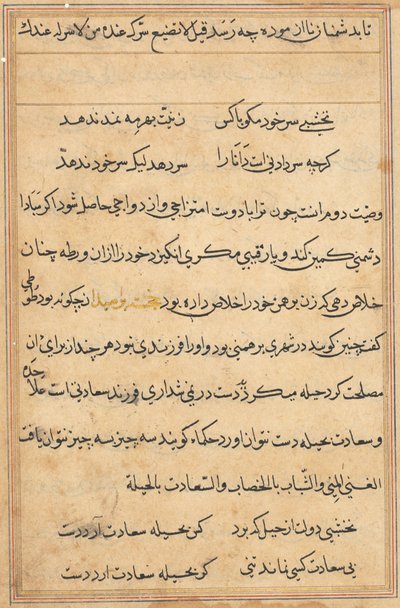 تا بدشمنان نا ازموده چه رسد قیل لا تضیع سرک عند من لا سر له عندک
نخشبی سر خود مکو با کس
کرچه سر دادنی است دانا را سر دهد لیک سر خود ندهد
وصیت دوم انست چون ترا با دوست امتزاجی و ازدواجی حاصل شود اکر مبادا
دشمنی کمین کند و یا رقیبی مکری انکیزد خود را از ان ورطه چنان
خلاص دهی که زن برهمن خود را خلاص داده بود خجسته پرسید ان چکونه بود طوطی
کفت چنین کویند در شهری برهمنی بود و او را فرزندی نبود هر چند از برای ان
مصلحت کرد حیله میکرد بدست در نمی شد اری فرزند سعادتی است علاحده
و سعادت بحیله دست نتوان اورد حکماء کویند سه چیز بسه چیز نتوان یافت
الغنی بالمنی والشباب بالخضاب والسعادت بالحیلة
نخشبی دولت از حیل که برد کس بحیله سعادت آرد دست
بی سعادت کسی نماند نبی کس بحیله سعادت ارد دست